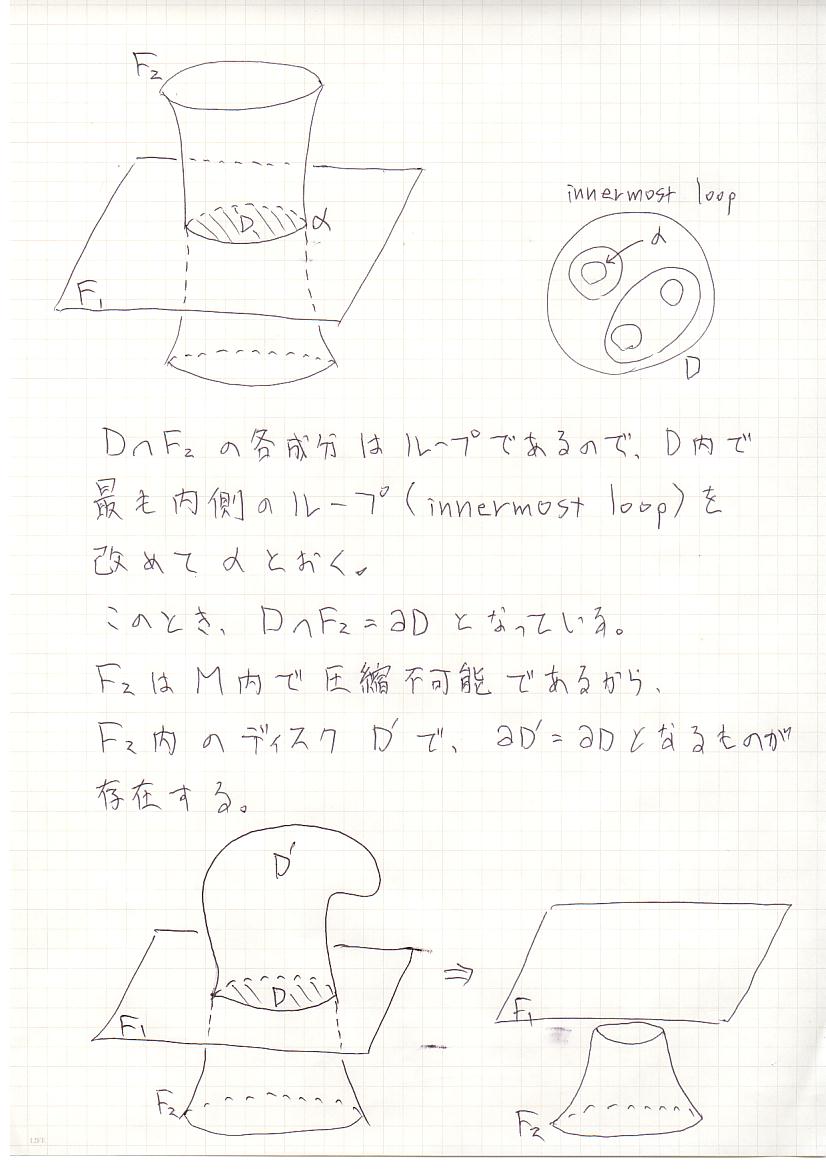 F₂
D
α
F₁
innermost loop
α
D
D∩F₂ の各成分は ループであるので、D内で
最も内側のループ(innermost loop)を
改めて α とおく。
このとき、D∩F₂=∂D となっている。
F₂は M内で 圧縮不可能であるから、
F₂内のディスク D′で、∂D′=∂Dとなるものが
存在する。
D′
D
F₁
F₂
⇒
F₁
F₂